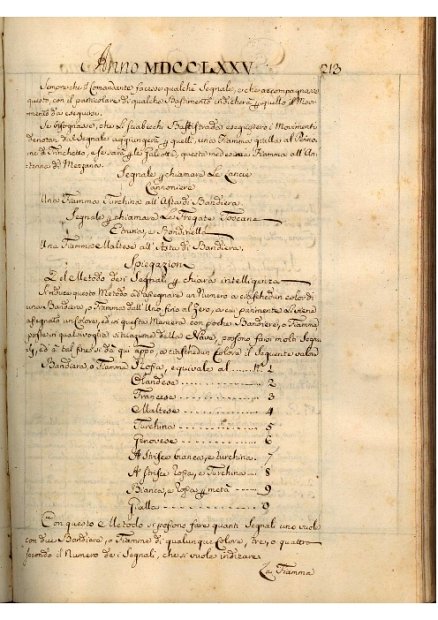 Anno MDCCLXXV 213
Sempre che il Comandante facesse qualche Segnale, e che accompagnasse
questo, con il particolare di qualche Bastimento indicherà, che quello il Mov-
mento da eseguire.
Se bisognasse, che li Sciabecchi Bastistrada eseguissero i Movimenti
denotati dal Segnale aggiungerà quelli, una Fiamma quella al Penno-
ne di Trinchetto, e se saranno le Galeotte, questa medesima Fiamma all'An-
tenna di Mezzana.
Segnale per chiamare Le Lancie
Cannoniere
Una Fiamma Turchina all'Asta di Bandiera.
Segnale per chiamare Le Fregate Toscane
Etruria, e Rondinella
Una Fiamma Maltese all'Asta di Bandiera.
Spiegazione
Del Metodo dei Segnali per chiara intelligenza
Si riduce questo Metodo ad assegnare un Numero a ciaschedun color di
una Bandiera, o Fiamma dall'Uno fino al Zero, a cui parimente
assegnato un Colore, ed in questa Maniera con poche Bandiere, o Fiamme
poste in qualsivoglia situazione della Nave, possono farsi molti Segna-
li, ed a tal fine si dà qui appo, a ciascheduno Colore il Seguente valore
Bandiera, o Fiamma Rossa, equivale al ...... No. 1
Olandese ................ 2
Francese ................ 3
Maltese ................ 4
Turchina ................ 5
Genovese ................ 6
A strisce bianca, e turchina. 7
A strisce Rossa, e Turchina ... 8
Bianca, e Rossa per metà ..... 9
Gialla ................ 0
Con questo Metodo si possono fare quanti Segnali uno vuole
con due Bandiere, o Fiamme di qualunque Colore, tre, o quattro
secondo il Numero dei Segnali, che si vuole indicare.
La Fiamma